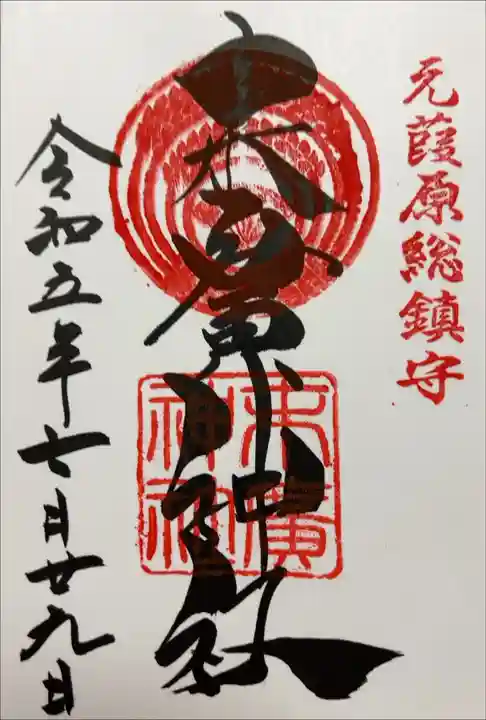 元葭原総鎮守
末廣神社
末廣
神社
令和五年七月廿九日